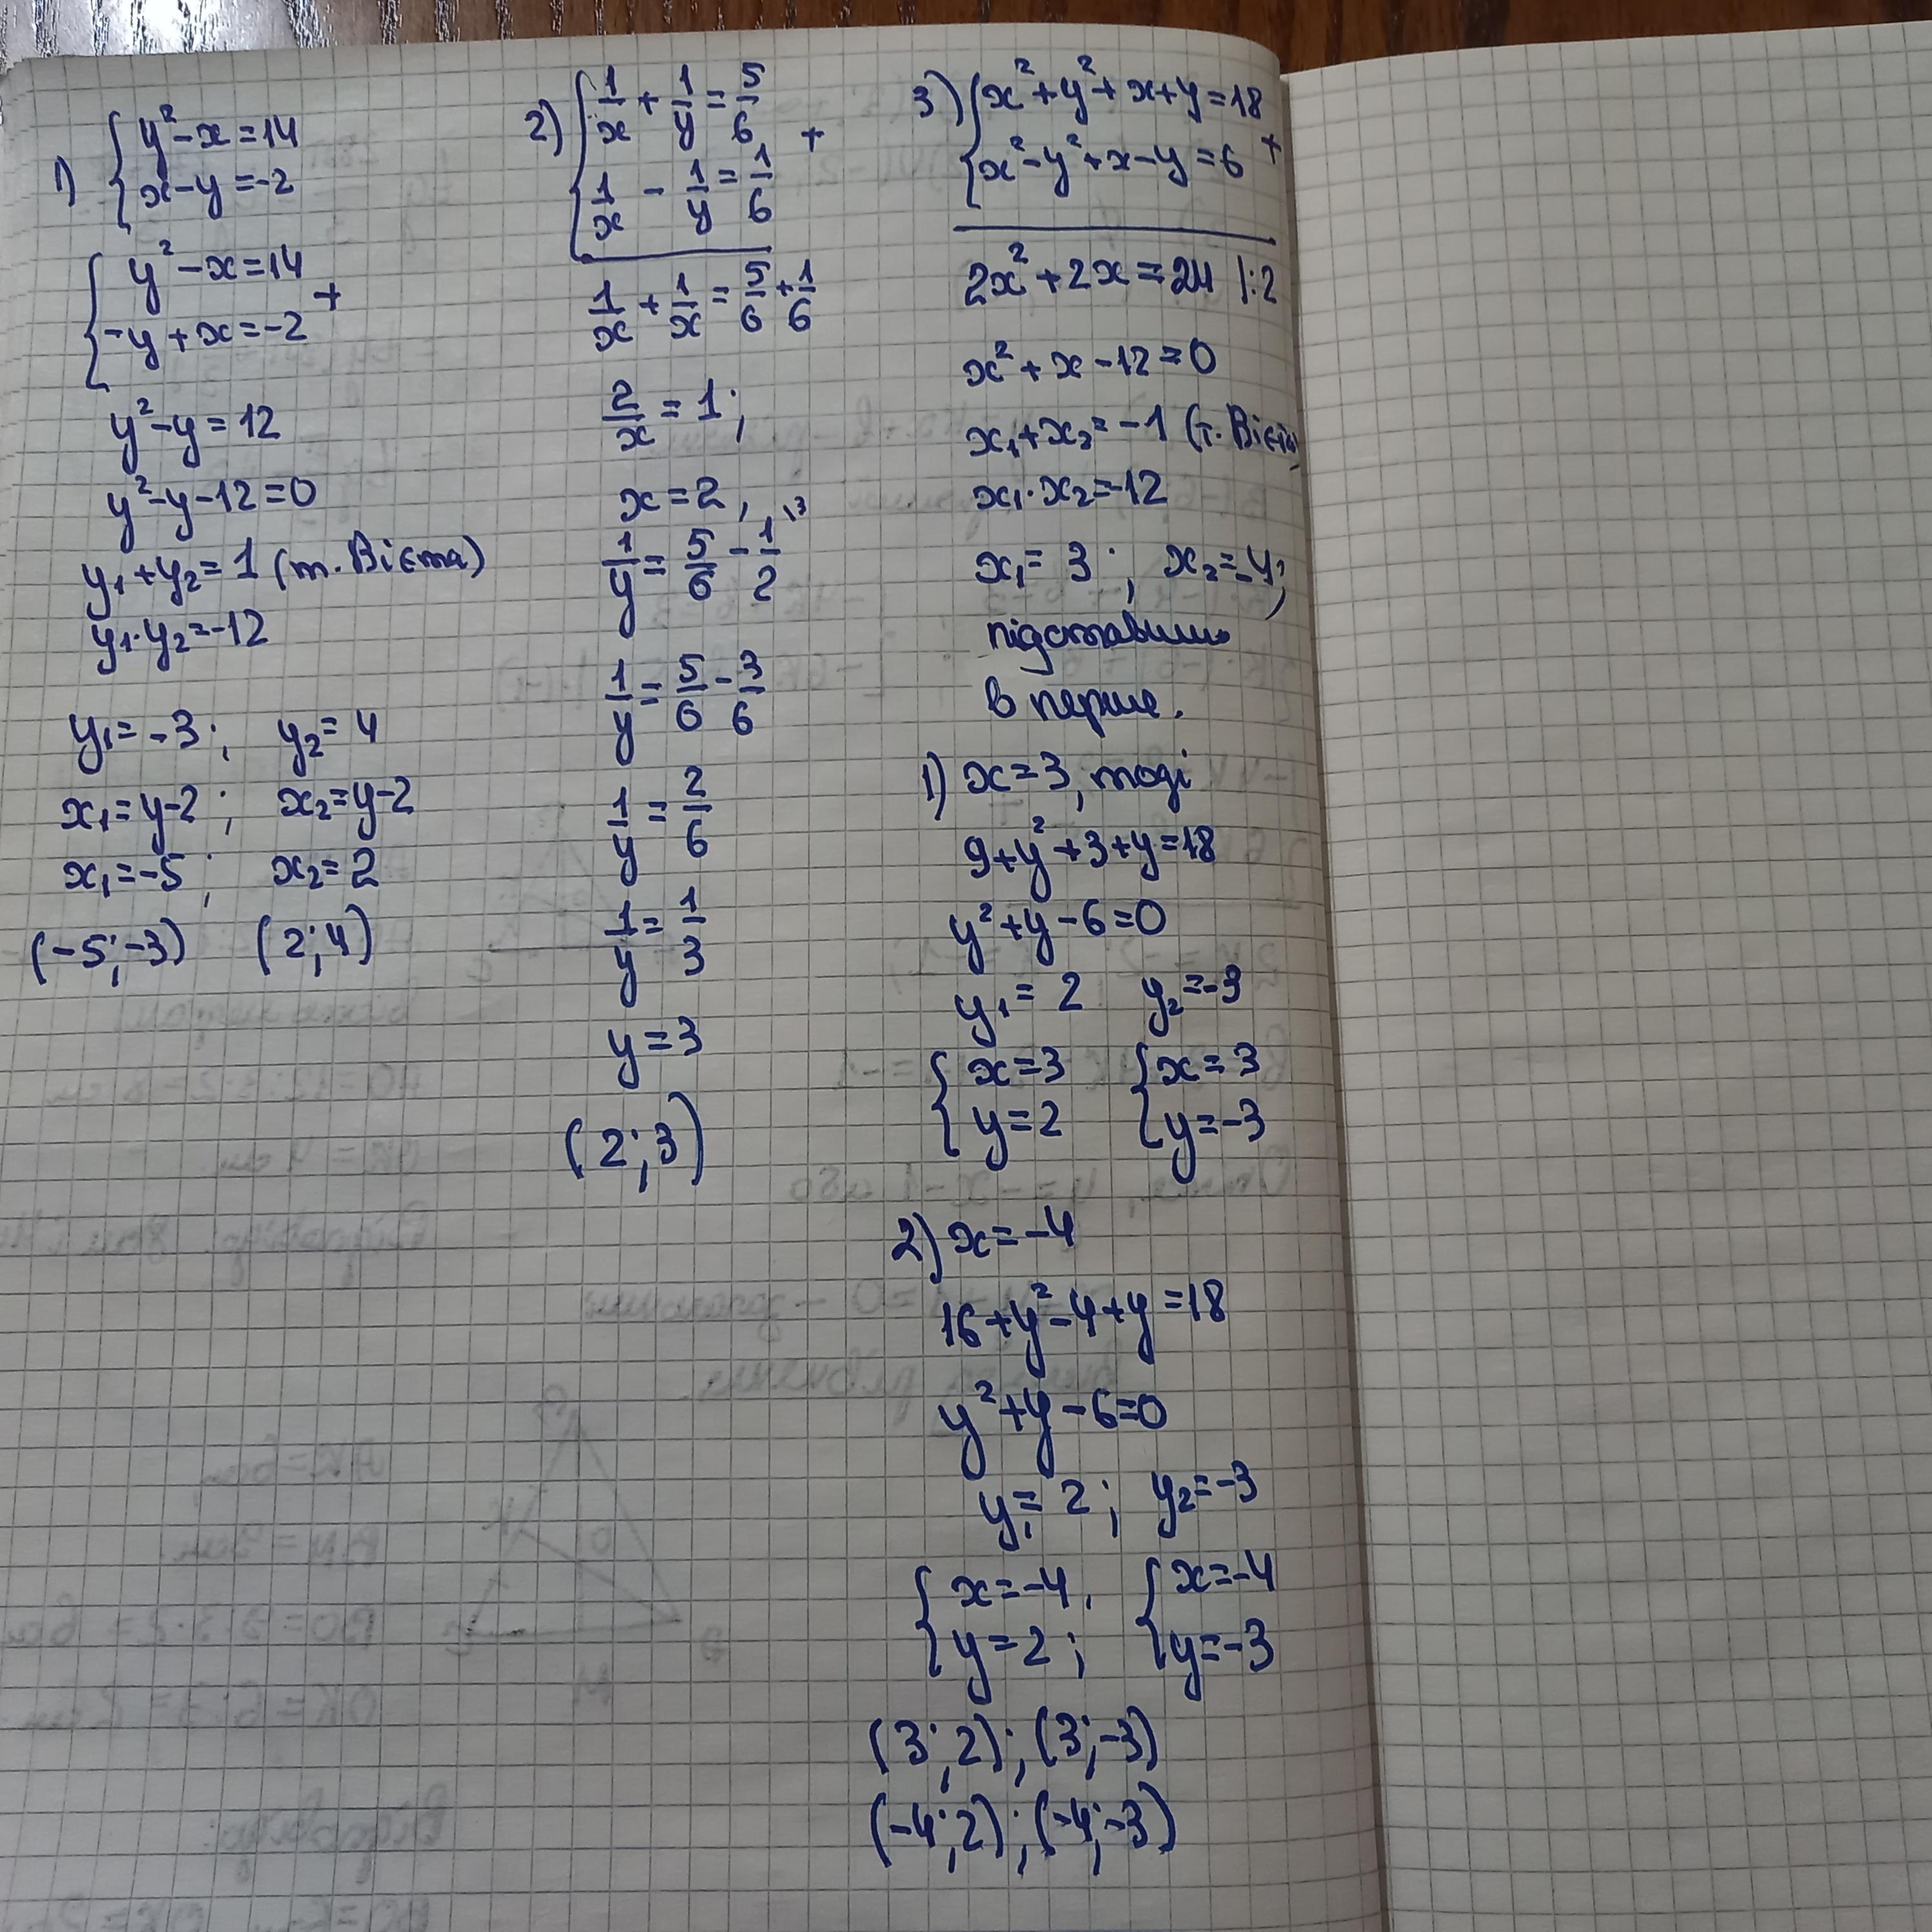 1) { y² - x = 14
x - y = -2
{ y² - x = 14
-y + x = -2 +
y² - y = 12
y² - y - 12 = 0
y₁ + y₂ = 1 (т. Вієта)
y₁ · y₂ = -12
y₁ = -3 ; y₂ = 4
x₁ = y-2 ; x₂ = y-2
x₁ = -5 ; x₂ = 2
(-5; -3) (2; 4)
2) { 1/x + 1/y = 5/6 +
1/x - 1/y = 1/6
1/x + 1/x = 5/6 + 1/6
2/x = 1 ;
x = 2 ,
1/y = 5/6 - 1/2 \3
1/y = 5/6 - 3/6
1/y = 2/6
1/y = 1/3
y = 3
(2; 3)
3) { x² + y² + x + y = 18
x² - y² + x - y = 6 +
2x² + 2x = 24 |:2
x² + x - 12 = 0
x₁ + x₂ = -1 (т. Вієта)
x₁ · x₂ = -12
x₁ = 3 ; x₂ = -4;
підставимо
в перше.
1) x = 3, тоді
9 + y² + 3 + y = 18
y² + y - 6 = 0
y₁ = 2 y₂ = -3
{ x = 3 { x = 3
y = 2 y = -3
2) x = -4
16 + y² - 4 + y = 18
y² + y - 6 = 0
y₁ = 2 ; y₂ = -3
{ x = -4, { x = -4
y = 2 ; y = -3
(3; 2) ; (3; -3)
(-4; 2) ; (-4; -3)